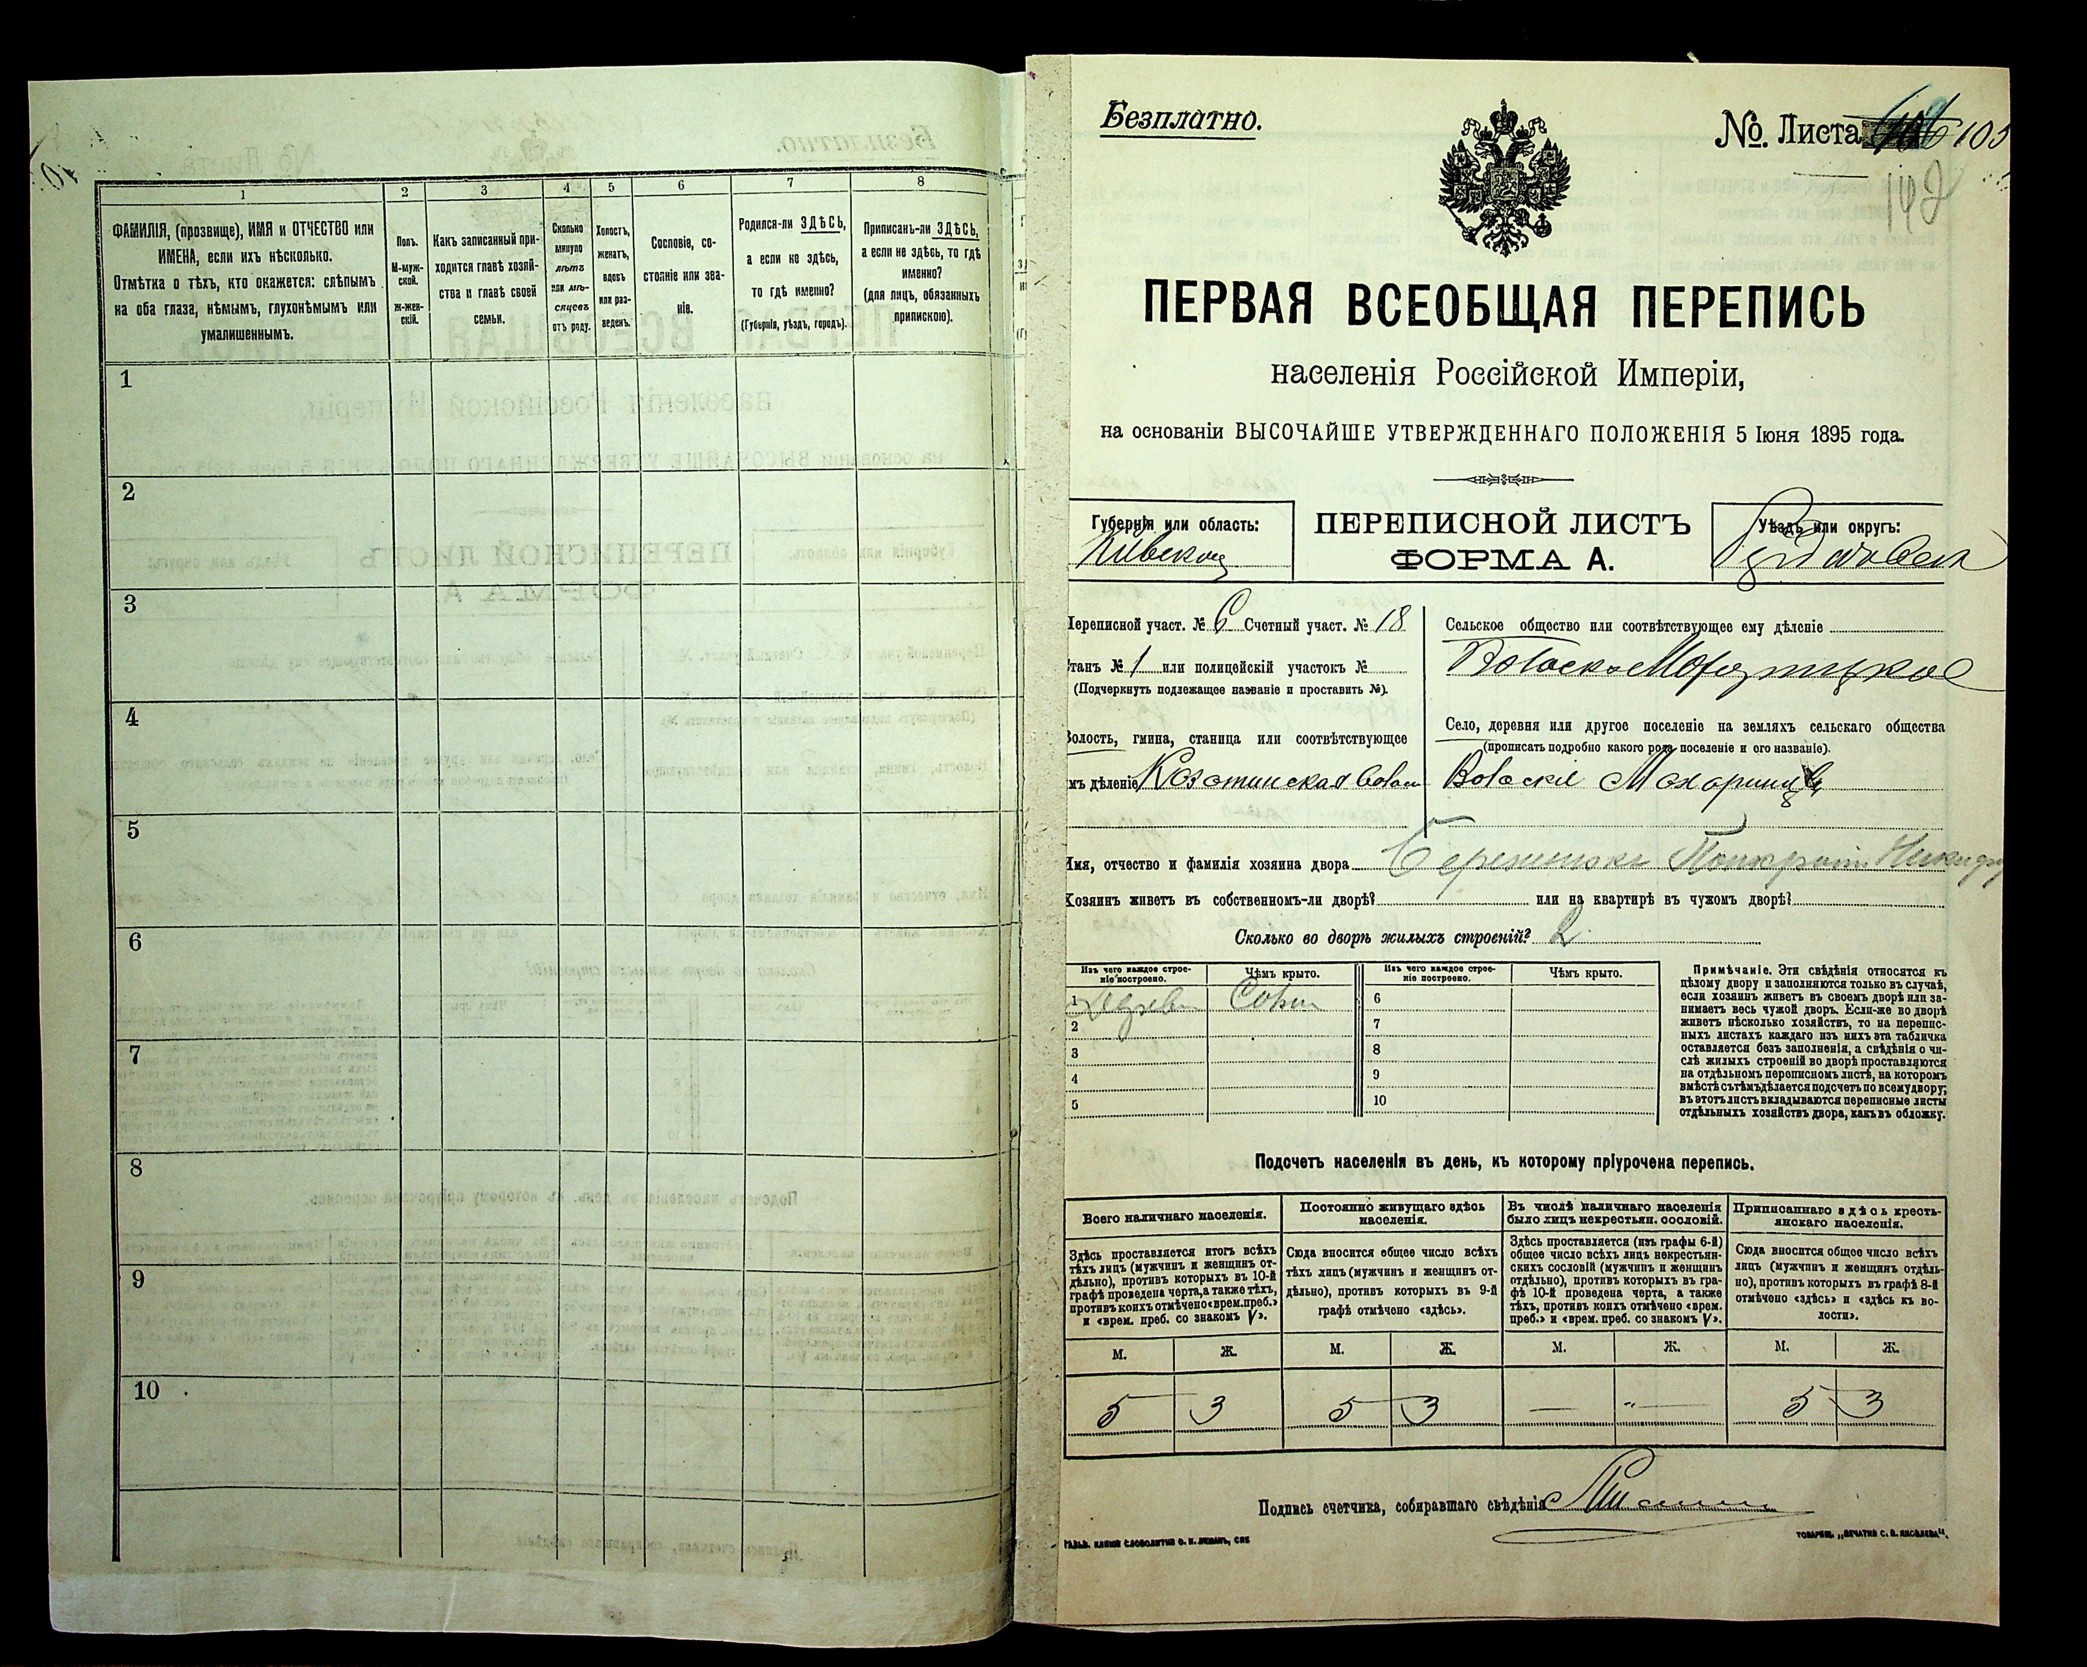 1
2
3
4
5
6
7
8
ФАМИЛІЯ, (прозвище), ИМЯ и ОТЧЕСТВО или
ИМЕНА, если ихъ нѣсколько.
Отмѣтка о тѣхъ, кто окажется: слѣпымъ
на оба глаза, нѣмымъ, глухонѣмымъ или
умалишеннымъ.
Полъ.
М-муж-
ской.
ж-жен-
скій.
Какъ записанный при-
ходится главѣ хозяй-
ства и главѣ своей
семьи.
Сколько
минуло
лѣтъ
или мѣ-
сяцевъ
отъ роду.
Холостъ,
женатъ,
вдовъ
или раз-
веденъ.
Сословіе, со-
стояніе или зва-
ніе.
Родился-ли ЗДѢСЬ,
а если не здѣсь,
то гдѣ именно?
(Губернія, уѣздъ, городъ).
Приписанъ-ли ЗДѢСЬ,
а если не здѣсь, то гдѣ
именно?
(для лицъ, обязанныхъ
припискою).
1
2
3
4
5
6
7
8
9
10
Безплатно.
№. Листа 105
142
ПЕРВАЯ ВСЕОБЩАЯ ПЕРЕПИСЬ
населенія Россійской Имперіи,
на основаніи ВЫСОЧАЙШЕ УТВЕРЖДЕННАГО ПОЛОЖЕНІЯ 5 Іюня 1895 года.
Губернія или область:
Кіевская
ПЕРЕПИСНОЙ ЛИСТЪ
ФОРМА А.
Уѣздъ или округъ:
Переписной участ. № 6 Счетный участ. № 18
Станъ № 1 или полицейскій участокъ №
(Подчеркнуть подлежащее названіе и проставить №).
Волость, гмина, станица или соотвѣтствующее
имъ дѣленіе Козатинская
Сельское общество или соотвѣтствующее ему дѣленіе
Село, деревня или другое поселеніе на земляхъ сельскаго общества
(прописать подробно какого рода поселеніе и его названіе).
Имя, отчество и фамилія хозяина двора
Хозяинъ живетъ въ собственномъ-ли дворѣ? или на квартирѣ въ чужомъ дворѣ?
Сколько во дворѣ жилыхъ строеній? 2
Изъ чего каждое строе-
ніе построено.
Чѣмъ крыто.
Изъ чего каждое строе-
ніе построено.
Чѣмъ крыто.
1
2
3
4
5
6
7
8
9
10
Примѣчаніе. Эти свѣдѣнія относятся къ
цѣлому двору и заполняются только въ случаѣ,
если хозяинъ живетъ въ своемъ дворѣ или за-
нимаетъ весь чужой дворъ. Если-же во дворѣ
живетъ нѣсколько хозяйствъ, то на перепис-
ныхъ листахъ каждаго изъ нихъ эта табличка
оставляется безъ заполненія, а свѣдѣнія о чи-
слѣ жилыхъ строеній во дворѣ проставляются
на отдѣльномъ переписномъ листѣ, на которомъ
вмѣстѣ съ тѣмъ дѣлается подсчетъ по всему двору;
въ этотъ листъ вкладываются переписные листы
отдѣльныхъ хозяйствъ двора, какъ въ обложку.
Подсчетъ населенія въ день, къ которому пріурочена перепись.
Всего наличнаго населенія.
Здѣсь проставляется итогъ всѣхъ
тѣхъ лицъ (мужчинъ и женщинъ от-
дѣльно), противъ которыхъ въ 10-й
графѣ проведена черта, а также тѣхъ,
противъ коихъ отмѣчено «врем. преб.»
и «врем. преб. со знакомъ V».
Постоянно живущаго здѣсь
населенія.
Сюда вносится общее число всѣхъ
тѣхъ лицъ (мужчинъ и женщинъ от-
дѣльно), противъ которыхъ въ 9-й
графѣ отмѣчено «здѣсь».
Въ числѣ наличнаго населенія
было лицъ некрестьян. сословій.
Здѣсь проставляется (изъ графы 6-й)
общее число всѣхъ лицъ некрестьян-
скихъ сословій (мужчинъ и женщинъ
отдѣльно), противъ которыхъ въ гра-
фѣ 10-й проведена черта, а также
тѣхъ, противъ коихъ отмѣчено «врем.
преб.» и «врем. преб. со знакомъ V».
Приписаннаго здѣсь кресть-
янскаго населенія.
Сюда вносится общее число всѣхъ
лицъ (мужчинъ и женщинъ отдѣль-
но), противъ которыхъ въ графѣ 8-й
отмѣчено «здѣсь» и «здѣсь къ во-
лости».
М. Ж. М. Ж. М. Ж. М. Ж.
5 3 5 3 — „— 5 3
Подпись счетчика, собиравшаго свѣдѣнія
ТОВАРИЩ. „ПЕЧАТНЯ С. П. ЯКОВЛЕВА".